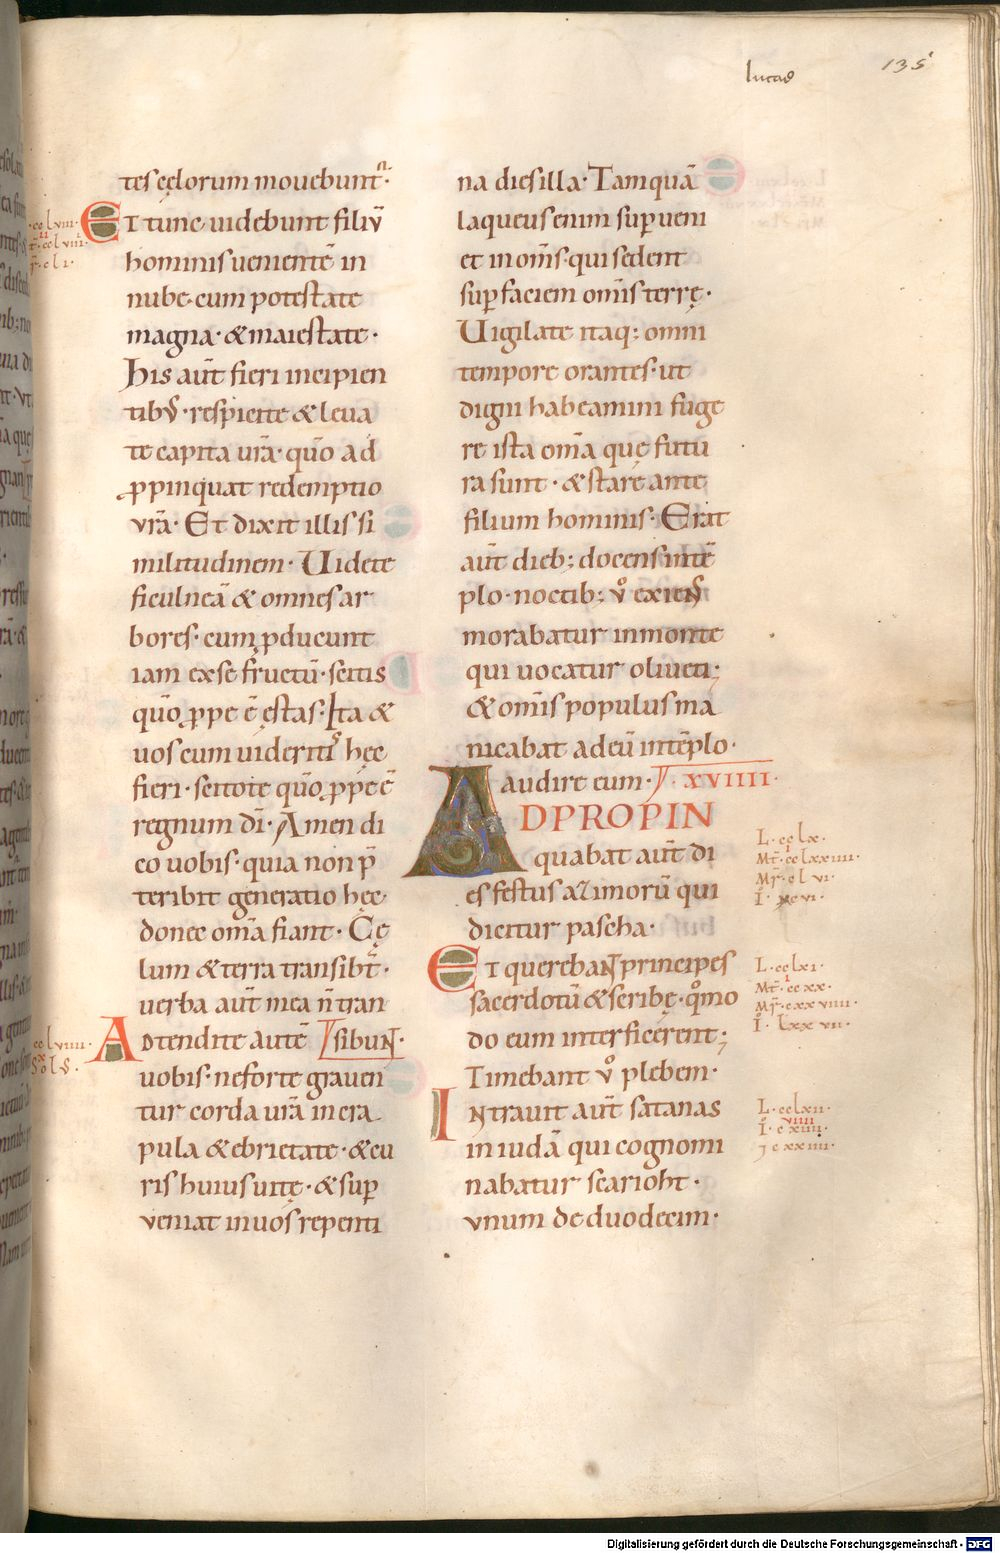 lucas
135
tes cęlorum mouebunt᷑·
·cclviii·
Et tunc uidebunt filiū
hominis uenientē in
nube cum potestate
magna· & maiestate·
His aūt fieri incipien
tib;· respicite & leua
te capita ur̄a· quō ad
ꝓpinquat redemptio
vr̄a· Et dixit illis si
militudinem· Uidete
ficulneā & omnes ar
bores· cum ꝓducunt
iam ex se fructū· scitis
quō ꝓpe ē ęstas· Ita &
uos cum uideritis hęc
fieri· scitote quō ꝓpe ē
regnum dī· Amen di
co uobis· quia non p̄
teribit generatio hęc
donec om̄a fiant· Cę
lum & terra transibt̄·
uerba aūt mea n̄ tran
Adtendite autē ⌈sibunt·
uobis· ne forte grauen
tur corda ur̄a in cra
pula & ebrietate· & cu
ris huius uitę· & suꝑ
veniat in uos repenti
na dies illa· Tamquā
laqueus enim suꝑueni
et in om̄s· qui sedent
suꝑ faciem om̄is terrę·
Uigilate itaq; omni
tempore orantes· ut
digni habeamini fuge
re ista om̄a quę futu
ra sunt· & stare ante
filium hominis· Erat
aūt dieb; docens in tē
plo· noctib; v̊ exiens
morabatur in monte
qui uocatur oliueti;
& om̄is populus ma
nicabat ad eū in tēplo·
audire eum· ⌈·XVIIII·
ADPROPIN
quabat aūt di
es festus azimorū qui
dicitur pascha·
L· cclx·
Mt̄· cclxxiiii·
Mr̄· clvi·
Et querebant principes
sacerdotū & scribę· quomo
do eum interficerent;
Timebant v̊ plebem·
L· cclxi·
Mt̄· ccxx·
Mr̄· cxxviiii·
I· lxxvii·
Intrauit aūt satanas
in iudā qui cognomi
nabatur scarioht·
vnum de duodecim·
L· cclxii·
I· cxiii·
Digitalisierung gefördert durch die Deutsche Forschungsgemeinschaft - DFG